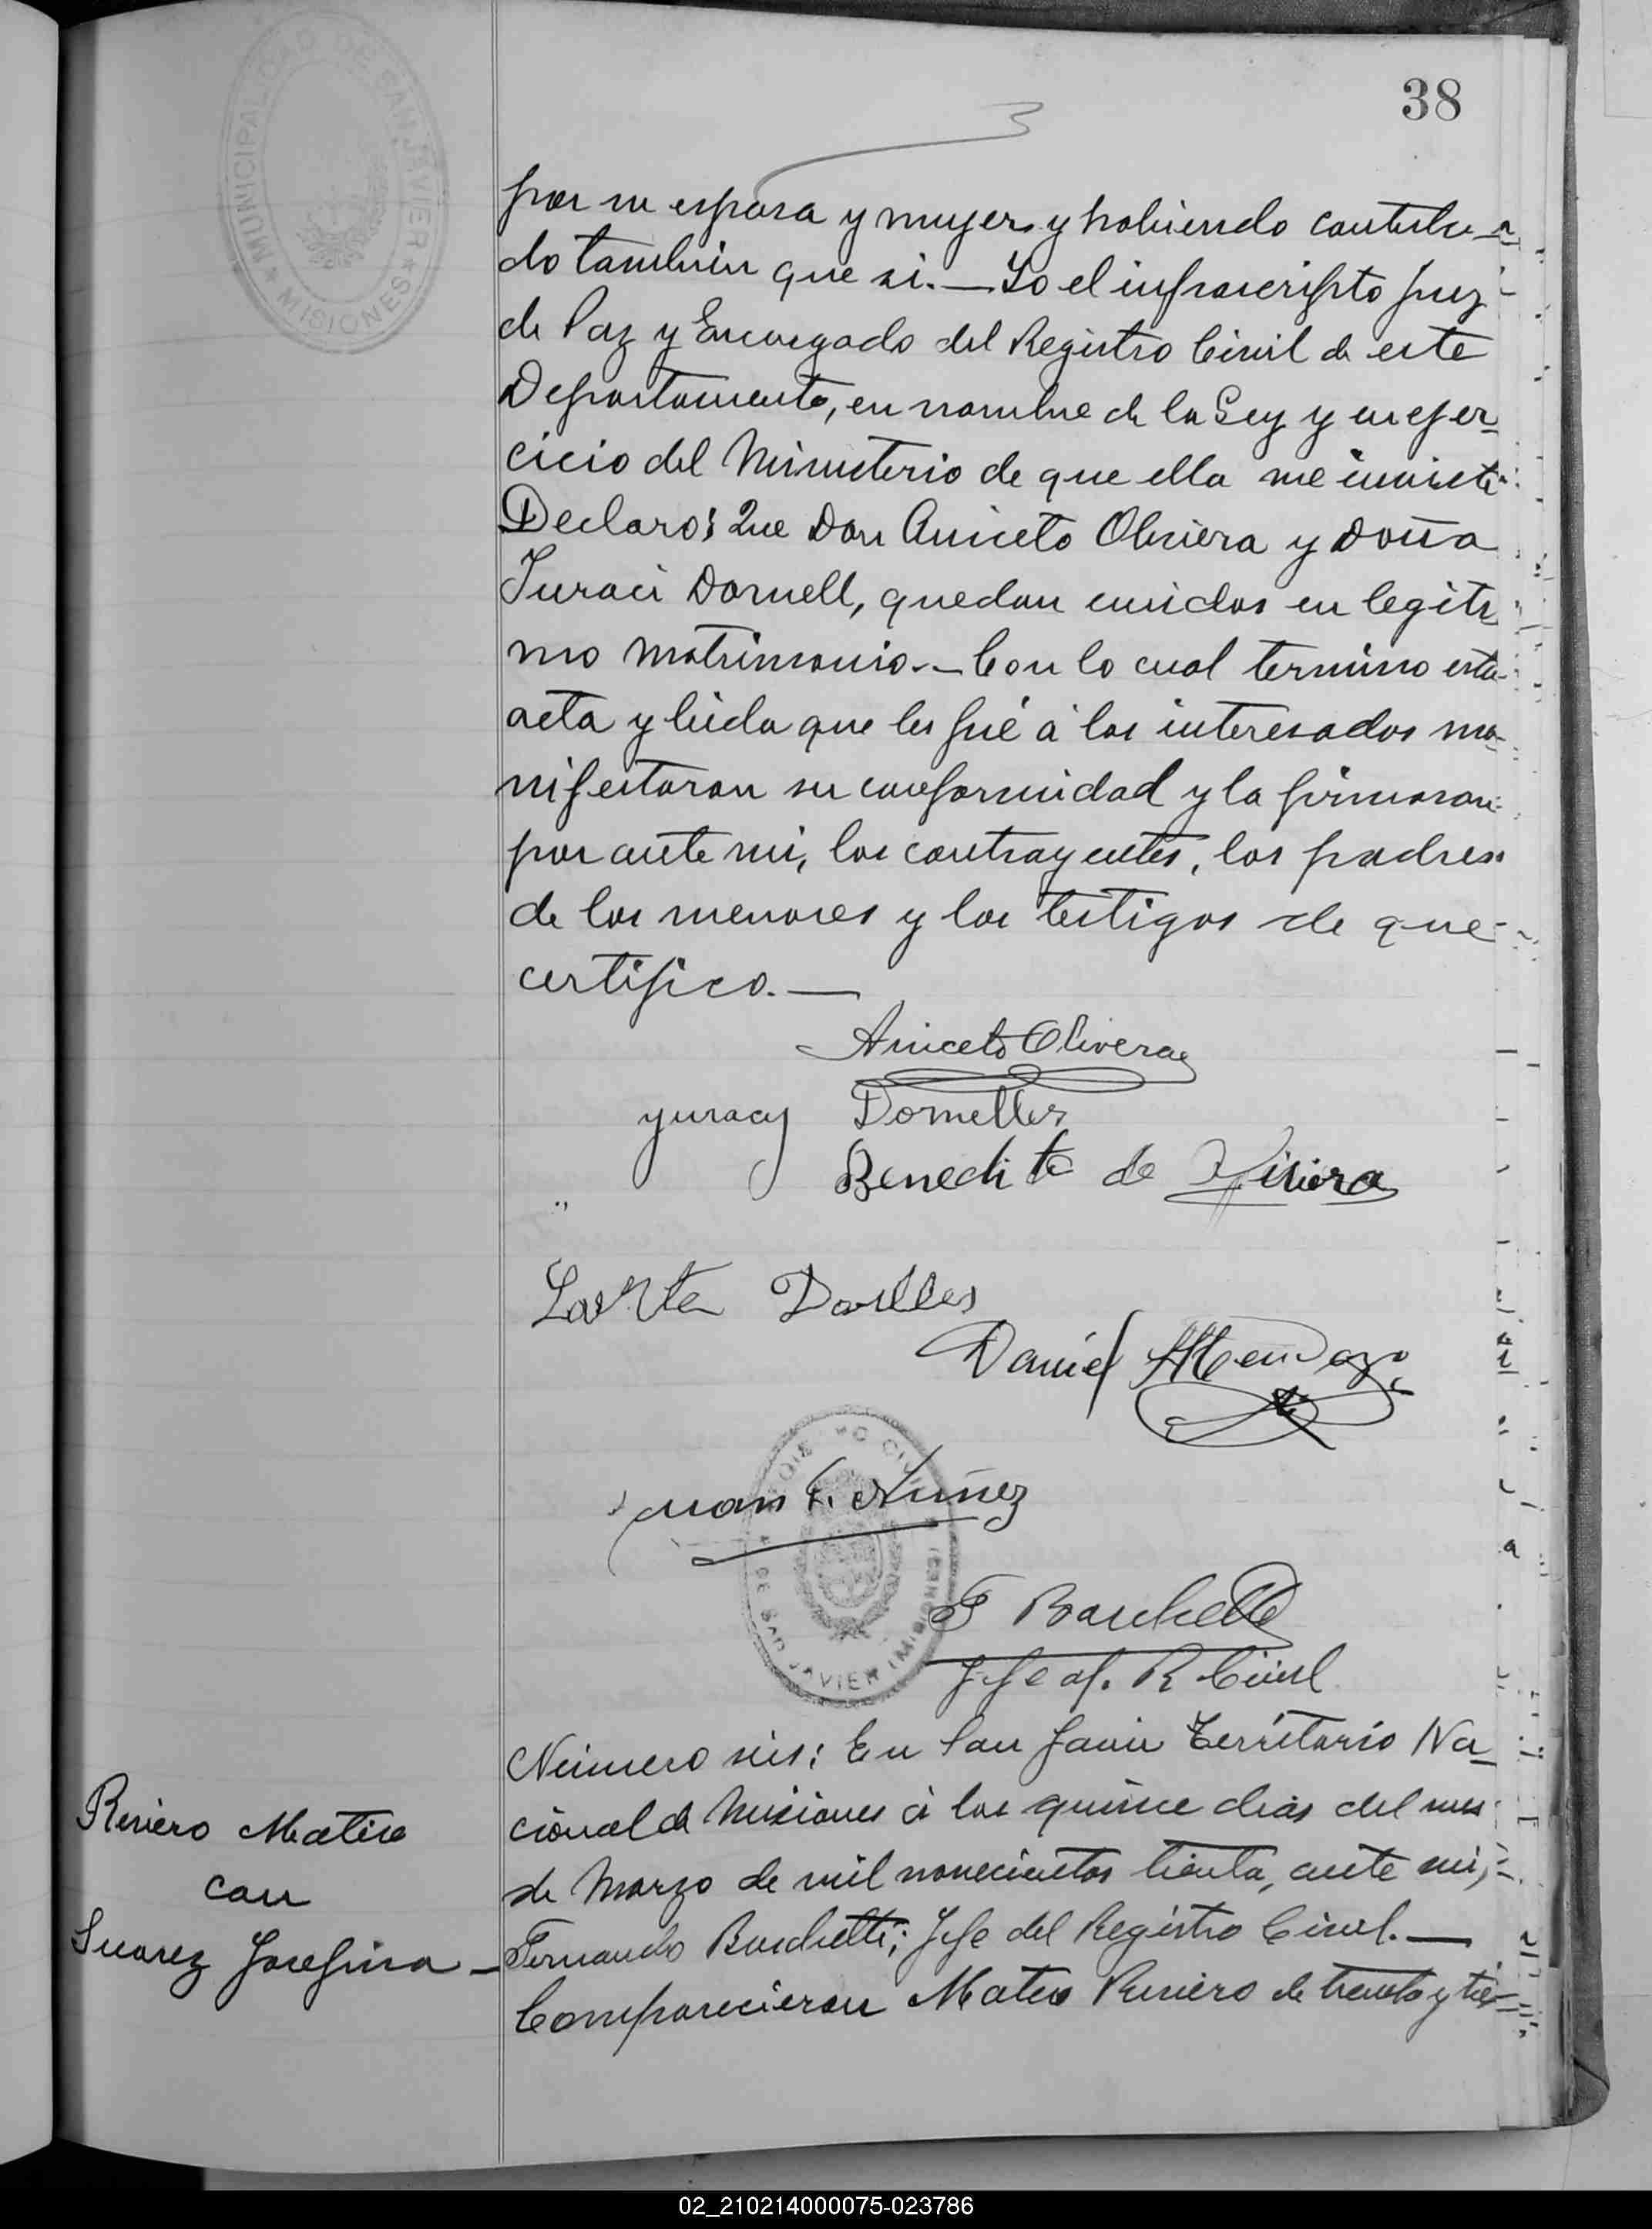 38
MUNICIPALIDAD DE SAN JAVIER
MISIONES
por su esposa y mujer y habiendo contesta-
do tambien que si.— Yo el infrascripto Juez
de Paz y Encargado del Registro Civil de este
Departamento, en nombre de la Ley y en ejer-
cicio del Ministerio de que ella me inviste
Declaro: Que Don Aniceto Oliviera y Doña
Juraci Dornell, quedan unidos en legiti
mo matrimonio.— Con lo cual termino esta
acta y leida que les fué á los interesados ma-
nifestaron su conformidad y la firmaron
por ante mi, los contrayentes, los padres
de los menores y los testigos de que
certifico.—
Aniceto Olivera
yuracy Dornelles
Benedita de
Daniel Mendoza
Juan F. Nuñez
REGISTRO CIVIL
DE SAN JAVIER (MISIONES)
F Barchetti
Jefe of. R Civil
Número seis: En San Javier Territorio Na-
cional de Misiones á los quince dias del mes
de Marzo de mil novecientos treinta, ante mi,
Fernando Barchetti; Jefe del Registro Civil.—
Comparecieron Mateo Riviero de treinta y
Riviero Mateo
con
Suarez Josefina
02_210214000075-023786